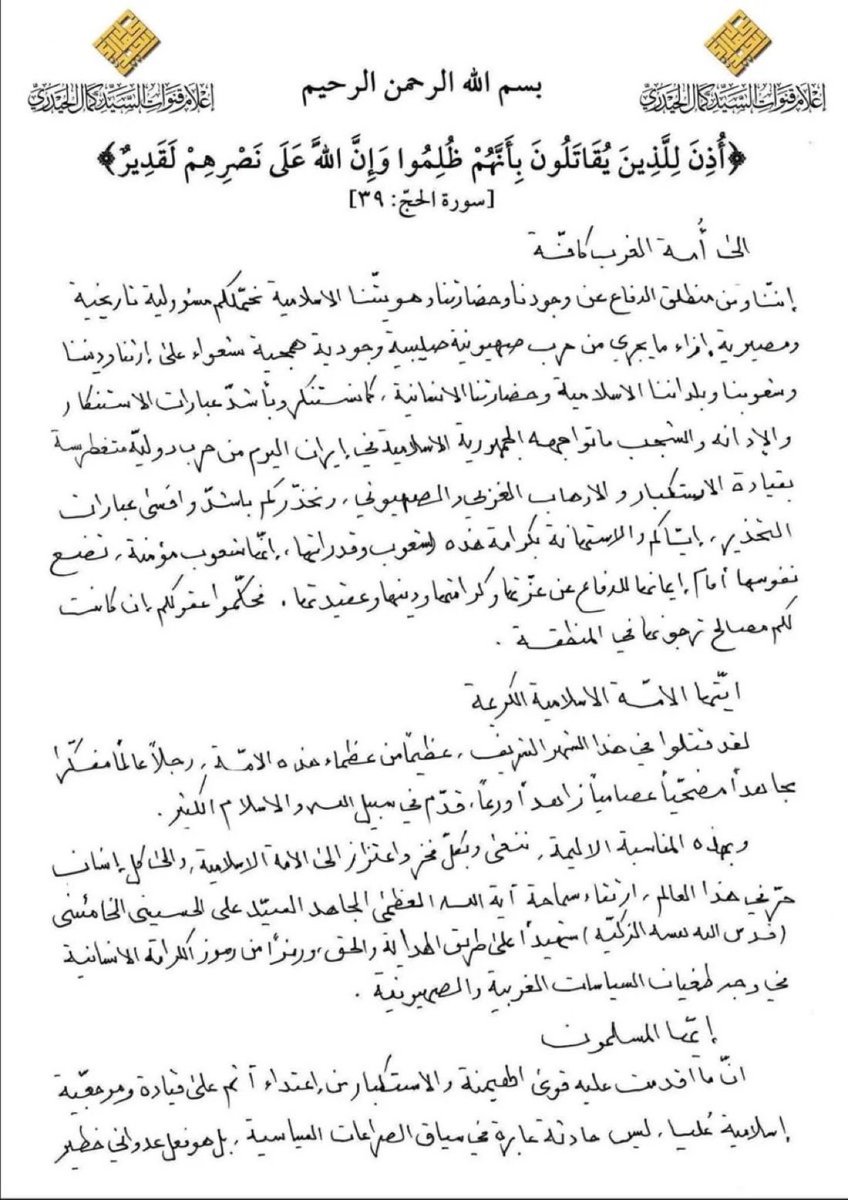 إعلام قنوات السيد كمال الحيدري
إعلام قنوات السيد كمال الحيدري
بسم الله الرحمن الرحيم
﴿أُذِنَ لِلَّذِينَ يُقَاتَلُونَ بِأَنَّهُمْ ظُلِمُوا وَإِنَّ اللهَ عَلَى نَصْرِهِمْ لَقَدِيرٌ﴾
[سورة الحجّ: ٣٩]
الى أُمة الغرب كافّة
إننا ومن منطلق الدفاع عن وجودنا وحضارتنا وهويتنا الاسلامية نحمّلكم مسؤولية تاريخية
ومصيرية إزاء ما يجري من حرب صهيونية صليبية وجودية همجية شعواء على إرثنا وديننا
وشعوبنا وبلداننا الاسلامية وحضارتنا الانسانية، كما نستنكر وبأشدّ عبارات الاستنكار
والإدانة والشجب ما تواجهه الجمهورية الاسلامية في إيران اليوم من حرب دوليّة متغطرسة
بقيادة الاستكبار والارهاب الغربي والصهيوني، ونحذّركم بأشدّ وأقسى عبارات
التحذير، إيّاكم والاستهانة بكرامة هذه الشعوب وقدراتها، إنّها شعوب مؤمنة، تضع
نفوسها أمام إيمانها للدفاع عن عزّتها وكرامتها ودينها وعقيدتها. فحكّموا عقولكم إن كانت
لكم مصالح ترجونها في المنطقة.
ايّتها الامّة الاسلامية الكريمة
لقد قتلوا في هذا الشهر الشريف، عظيماً من عظماء هذه الامّة، رجلاً عالماً مفكّراً
مجاهداً مضحّياً عصامياً زاهداً ورعاً، قدّم في سبيل الله والاسلام الكثير.
وبهذه المناسبة الاليمة، ننعى وبكلّ فخر واعتزاز الى الامة الاسلامية، والى كل إنسان
حرّ في هذا العالم، ارتقاء سماحة آية الله العظمى المجاهد السيّد علي الحسيني الخامنئي
(قدس الله نفسه الزكيّة) شهيداً على طريق الهداية والحق، ورمزاً من رموز الكرامة الانسانية
في وجه طغيان السياسات الغربية والصهيونية.
إيّها المسلمون
انّ ما أقدمت عليه قوى الهيمنة والاستكبار من إعتداء آثم على قيادة ومرجعيّة
إسلامية عُليا، ليس حادثة عابرة في سياق الصراعات السياسية، بل هو فعل عدواني خطير